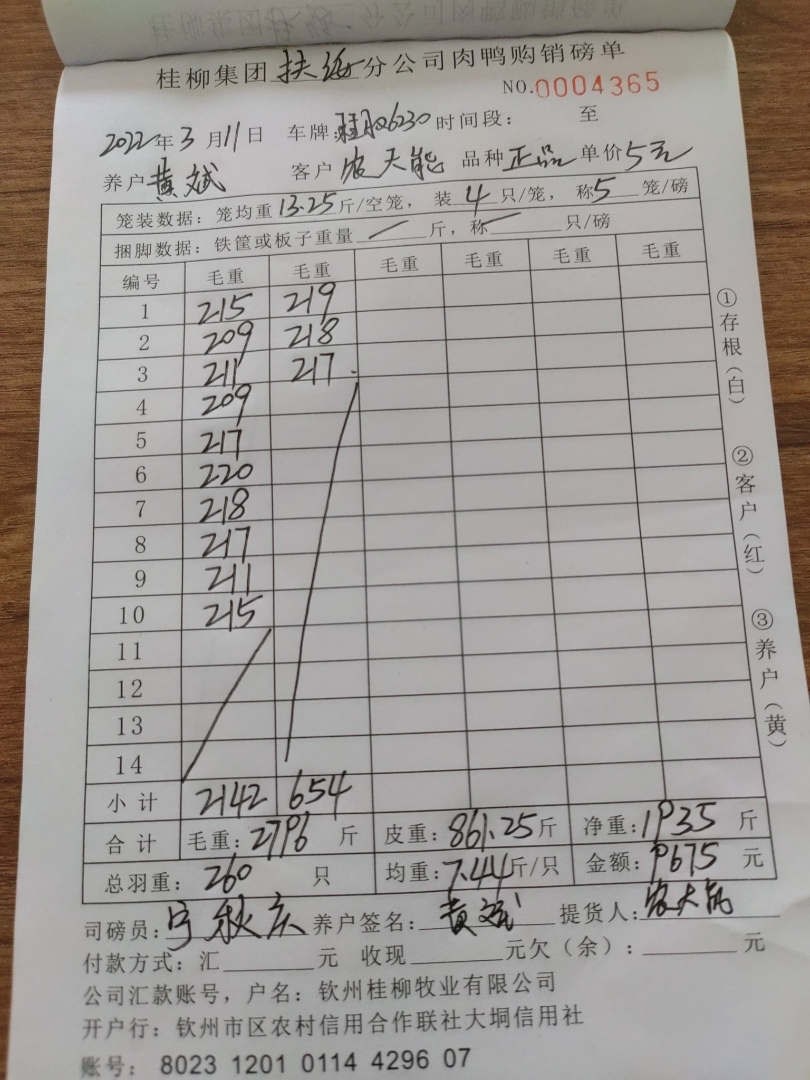 桂柳集团扶绥分公司肉鸭购销磅单
NO.0004365
2022年3月11日 车牌:桂 6230 时间段: 至
养户黄斌 客户农天能 品种正品 单价5元
笼装数据:笼均重13.25斤/空笼,装4只/笼,称5笼/磅
捆脚数据:铁筐或板子重量 / 斤,称 / 只/磅
编号 毛重 毛重 毛重 毛重 毛重 毛重
1 215 219
2 209 218
3 211 217
4 209
5 217
6 220
7 218
8 217
9 211
10 215
11
12
13
14
小计 2142 654
合计 毛重:2796斤 皮重:861.25斤 净重:1935斤
总羽重:260只 均重:7.44斤/只 金额:9675元
司磅员:宁秋庆 养户签名:黄斌 提货人:农天能
付款方式:汇 元 收现 元欠(余): 元
公司汇款账号,户名:钦州桂柳牧业有限公司
开户行:钦州市区农村信用合作联社大垌信用社
账号: 8023 1201 0114 4296 07
①存根(白)
②客户(红)
③养户(黄)